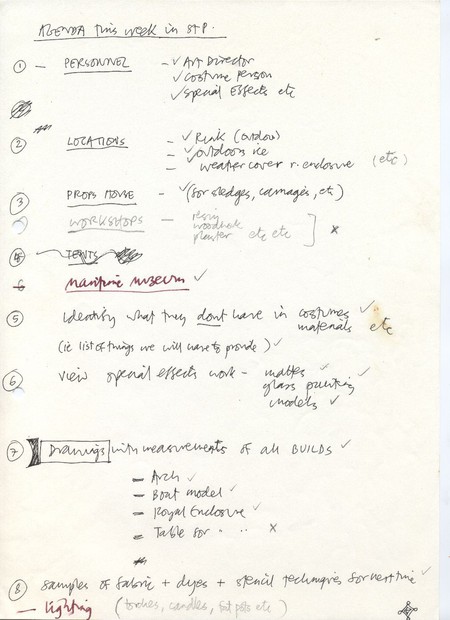 AGENDA this week in St P.
① — PERSONNEL — ✓ Art Director
✓ costume person
✓ special effects etc
② LOCATIONS — ✓ Rink (outdoor)
— ✓ outdoors ice
— weather cover r. enclosure (etc)
③ PROPS HOUSE — ✓ (for sledges, carriages, etc)
WORKSHOPS — resin
woodwork
plaster etc etc ] x
④ TENTS
maritime museum ✓
⑤ Identify what they dont have in costumes ✓
materials etc
(ie list of things we will have to provide) ✓
⑥ view special effects work — mattes ✓
glass painting ✓
models ✓
⑦ Drawings with measurements of all BUILDS ✓
— Arch ✓
— Boat model ✓
— Royal Enclosure ✓
— Table for " " x
⑧ samples of fabric + dyes + stencil techniques for next time ✓
— lighting (torches, candles, etc)